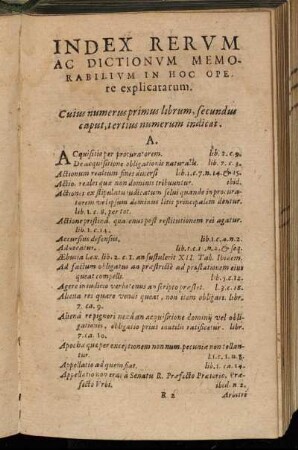 INDEX RERVM
AC DICTIONVM MEMO-
RABILIVM IN HOC OPE-
re explicatarum.
Cuius numerus primus librum, secundus
caput, tertius numerum indicat.
A.
ACquisitio per procuratorem. lib. 2. c. 9.
De acquisitione obligationis naturalis. lib. 7. c. 4.
Actionum realium fines diuersi lib. 1. c. 7. n. 14. & 15.
Actio. reales quæ non domino tribuuntur. ibid.
Actionis ex stipulatu iudicatum solui quando in procura-
torem vel ipsum dominum litis principalem dentur.
lib. 1. c. 8. per tot.
Actione pristina quatenus post restitutionem rei agatur.
lib. 1. c. 14.
Accursius defensus. lib. 1. c. n. 2.
Aduocatus.
Æbutia Lex. lib. 2. c. 1. an sustulerit XII. Tab. ibidem.
Ad factum obligatus an præstitio ad præstationem eius
queat compelli. lib. 3. c. 12.
Agere in iudicio verbotenus an scripto præstet. l. 3. c. 18.
Aliena res quare venire queat, non item obligari. liber.
7. ca. 9.
Alienâ re pignori nexâ an acquisitione dominij vel obli-
gationis, obligatio prius inutilis ratificetur. liber.
7. ca. 10.
Apochæ quæ per exceptionem non num. pecuniæ non tollan-
tur. l. 1. c. 1. n. 8.
Appellatio ad quem fiat. lib. 1. ca. 14.
Appellatio non erat à Senatu R. Præfecto Prætorio, Præ-
fecto Vrbi. ibid. n. 2.
R 2